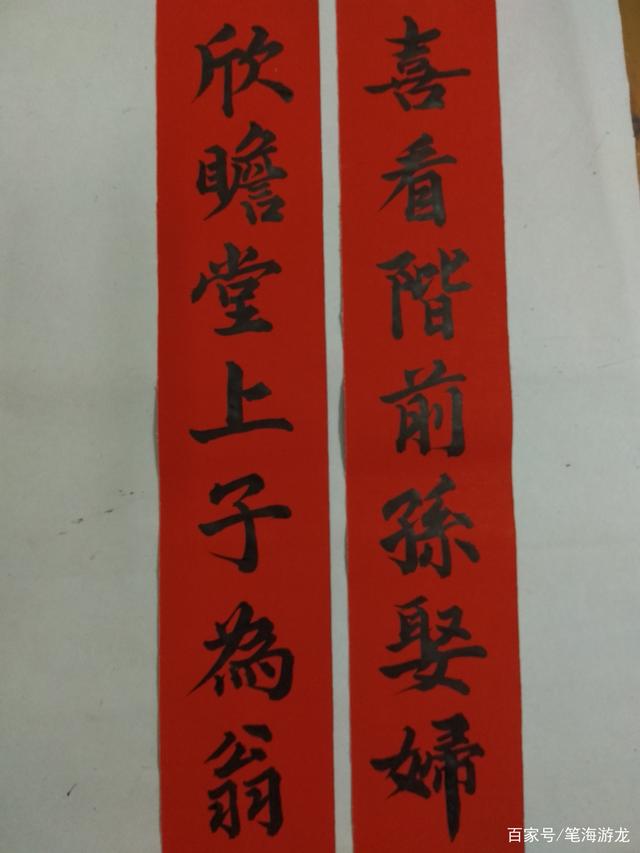 喜看階前孫娶婦
欣瞻堂上子為翁
百家号/笔海游龙